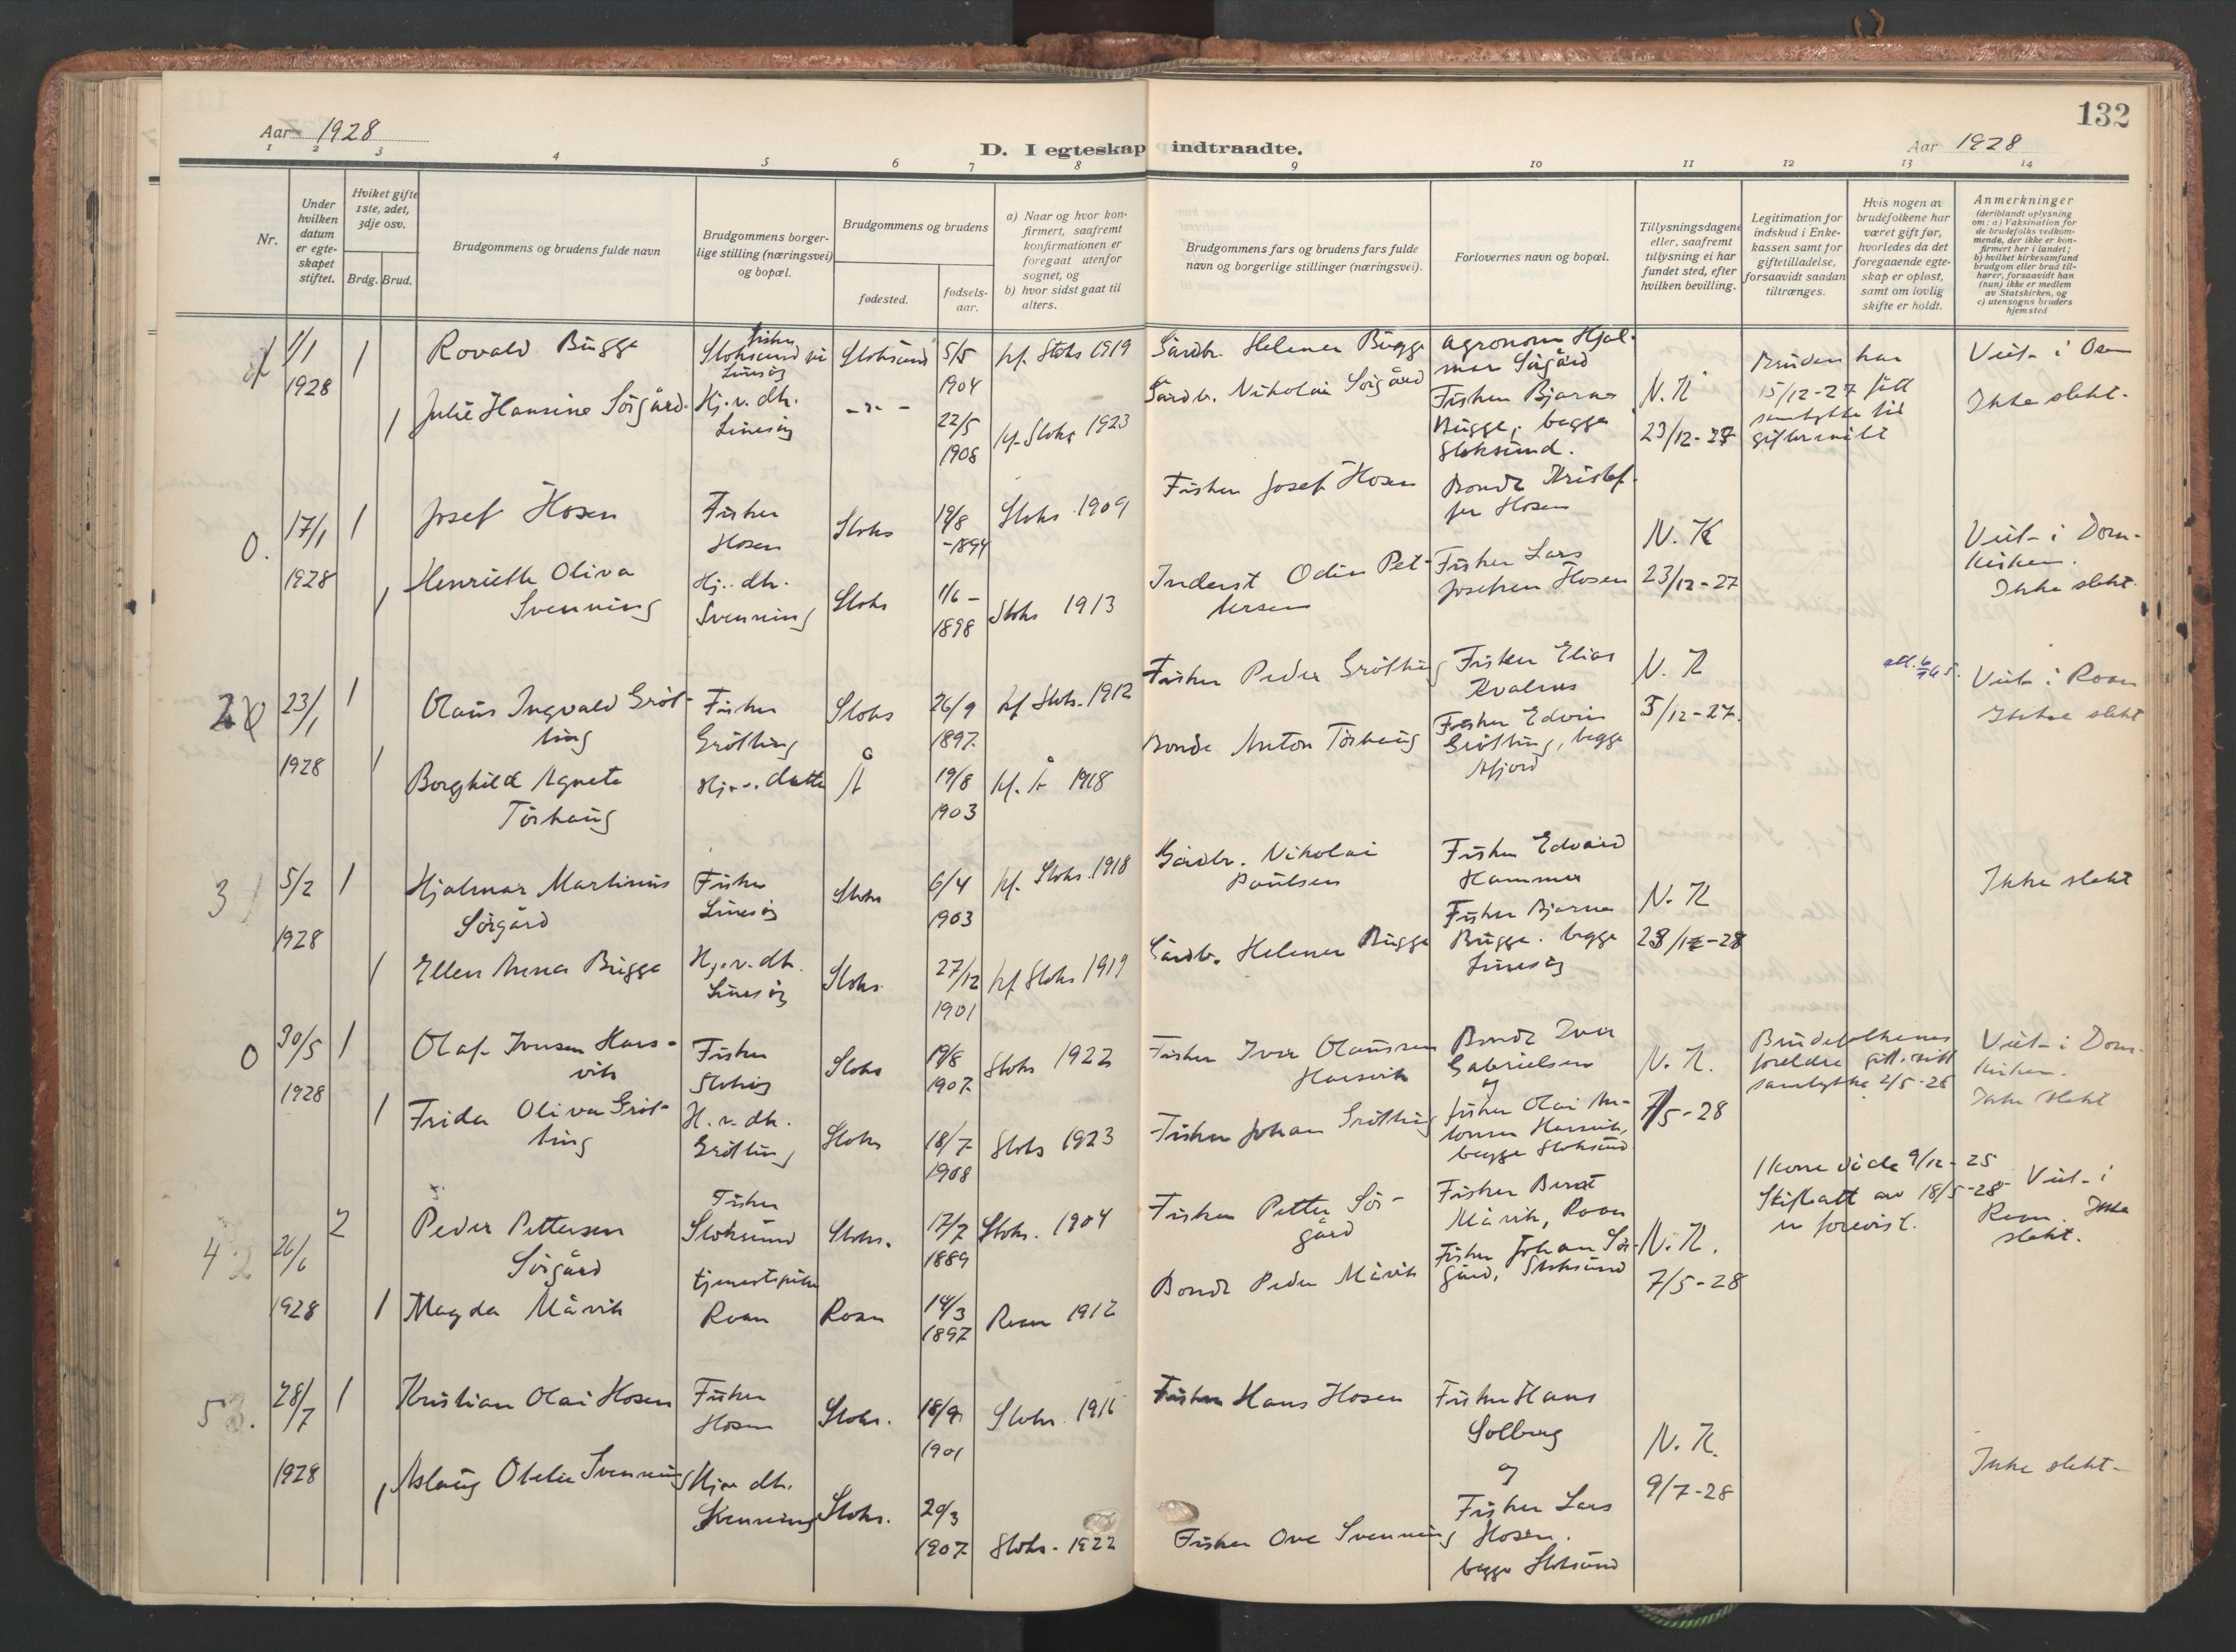 132
Aar 1928
D. I egteskap indtraadte.
Aar 1928
1 2 3 4 5 6 7 8 9 10 11 12 13 14
Nr.
Under hvilken datum er egte-skapet stiftet.
Hviket gifte 1ste, 2det, 3dje osv.
Brdg. Brud.
Brudgommens og brudens fulde navn
Brudgommens borger-lige stilling (næringsvei) og bopæl.
Brudgommens og brudens
fødested.
fødsels-aar.
a) Naar og hvor kon-firmert, saafremt konfirmationen er foregaat utenfor sognet, og
b) hvor sidst gaat til alters.
Brudgommens fars og brudens fars fulde navn og borgerlige stillinger (næringsvei).
Forlovernes navn og bopæl.
Tillysningsdagene eller, saafremt tillysning ei har fundet sted, efter hvilken bevilling.
Legitimation for indskud i Enke-kassen samt for giftetilladelse, forsaavidt saadan tiltrænges.
Hvis nogen av brudefolkene har været gift før, hvorledes da det foregaaende egte-skap er opløst, samt om lovlig skifte er holdt.
Anmerkninger
(deriblandt oplysning om: a) Vaksination for de brudefolks vedkom-mende, der ikke er kon-firmert her i landet; b) hvilket kirkesamfund brudgom eller brud til-hører, forsaavidt han (hun) ikke er medlem av Statskirken, og c) utensogns bruders hjemsted
1/1 1928
1
Rovald Bugge
Fisker Stoksund
Linesøy
Stoksund
5/5 1904
kf. Stoks 1919
Gårdbr. Helmer Bugge
Agronom Hjal-
mar Sørgård
Fisker Bjarne
Bugge, begge
Stoksund.
N. K
23/12-27
Bruden har
15/12-27 fått
samtykke til
Viet i Osen
Ikke slekt.
1
Julie Hansine Sørgård
Hj. v. dtr.
Linesøy
22/5 1908
kf. Stoks 1923
Gårdbr. Nikolai Sørgård
0.
17/1 1928
1
Josef Hosen
Fisker
Hosen
Stoks
19/8 -1894
Stoks 1909
Fisker Josef Hosen
Bonde Kristof-
fer Hosen
Fisker Lars
Josefsen Hosen
N. K
23/12-27
Viet i Dom-
kirken.
Ikke slekt.
1
Henriette Oliva
Svenning
Hj. dtr.
Svenning
Stoks
1/6 - 1898
Stoks 1913
Inderst Odin Pet-
tersen
2
23/1 1928
1
Olaus Ingvald Grøt-
ting
Fisker
Grøtting
Stoks
26/9 1897
kf Stoks. 1912
Fisker Peder Grøtting
Fisker Elias
Kvalnes
Fisker Edvin
Grøtting, begge
Åfjord
N. K
5/12-27.
Viet i Roan
Ikke slekt
1
Borghild Agnete
Torhaug
Hj. v. datter
Å
19/8 1903
kf. Å 1918
Bonde Anton Torhaug
3
5/2 1928
1
Hjalmar Martinus
Sørgård
Fisker
Linesøy
Stoks
6/4 1903
kf. Stoks. 1918
Gårdbr. Nikolai
Paulsen
Fisker Edvard
Hammer
Fisker Bjarne
Bugge. begge
Linesøy
N. K
Ikke slekt
1
Ellen Anna Bugge
Hj. v. dtr.
Linesøy
Stoks.
27/12 1901
kf Stoks 1919
Gårdb. Helmer Bugge
0
30/5 1928
1
Olaf Iversen Hars-
vik
Fisker
Stokøy
Stoks
19/8 1907.
Stoks 1922
Fisker Iver Olaussen
Harsvik
Bonde Iver
Gabrielsen
og
fisker Olai An-
tonsen Harsvik,
begge Stoksund
N. K.
7/5-28
Brudefolkenes
foreldre gitt sitt
samtykke 2/5-28
Viet i Dom-
kirken.
Ikke slekt
1
Frida Oliva Grøt-
ting
H. v. dtr.
Grøtting
Stoks
18/7 1908
Stoks 1923
Fisker Johan Grøtting
4
26/6 1928
2
Peder Pettersen
Sørgård
Fisker
Stoksund
Stoks.
17/7 1889
Stoks. 1904
Fisker Petter Sør-
gård
Fisker Berat
Måvik, Roan
Fisker Johan Sør-
gård, Stoksund
N. K.
7/5-28
1 kone døde 9/12-25
Skifteatt av 18/5-28
er forevist.
Viet i
Roan. Ikke
slekt.
1
Magda Måvik
tjenestepike
Roan
Roan
14/3 1897
Roan 1912
Bonde Peder Måvik
5
28/7 1928
1
Kristian Olai Hosen
Fisker
Hosen
Stoks.
18/9 1901
Stoks. 1916
Fisker Hans Hosen
Fisker Hans
Solberg
og
Fisker Lars
Hosen.
begge Stoksund
N. K.
9/7-28
Ikke slekt-
1
Aslaug Otelie Svenning
Hjv. dtr.
Svenning
Stoks.
20/3 1907.
Stoks. 1922
Fisker Ove Svenning